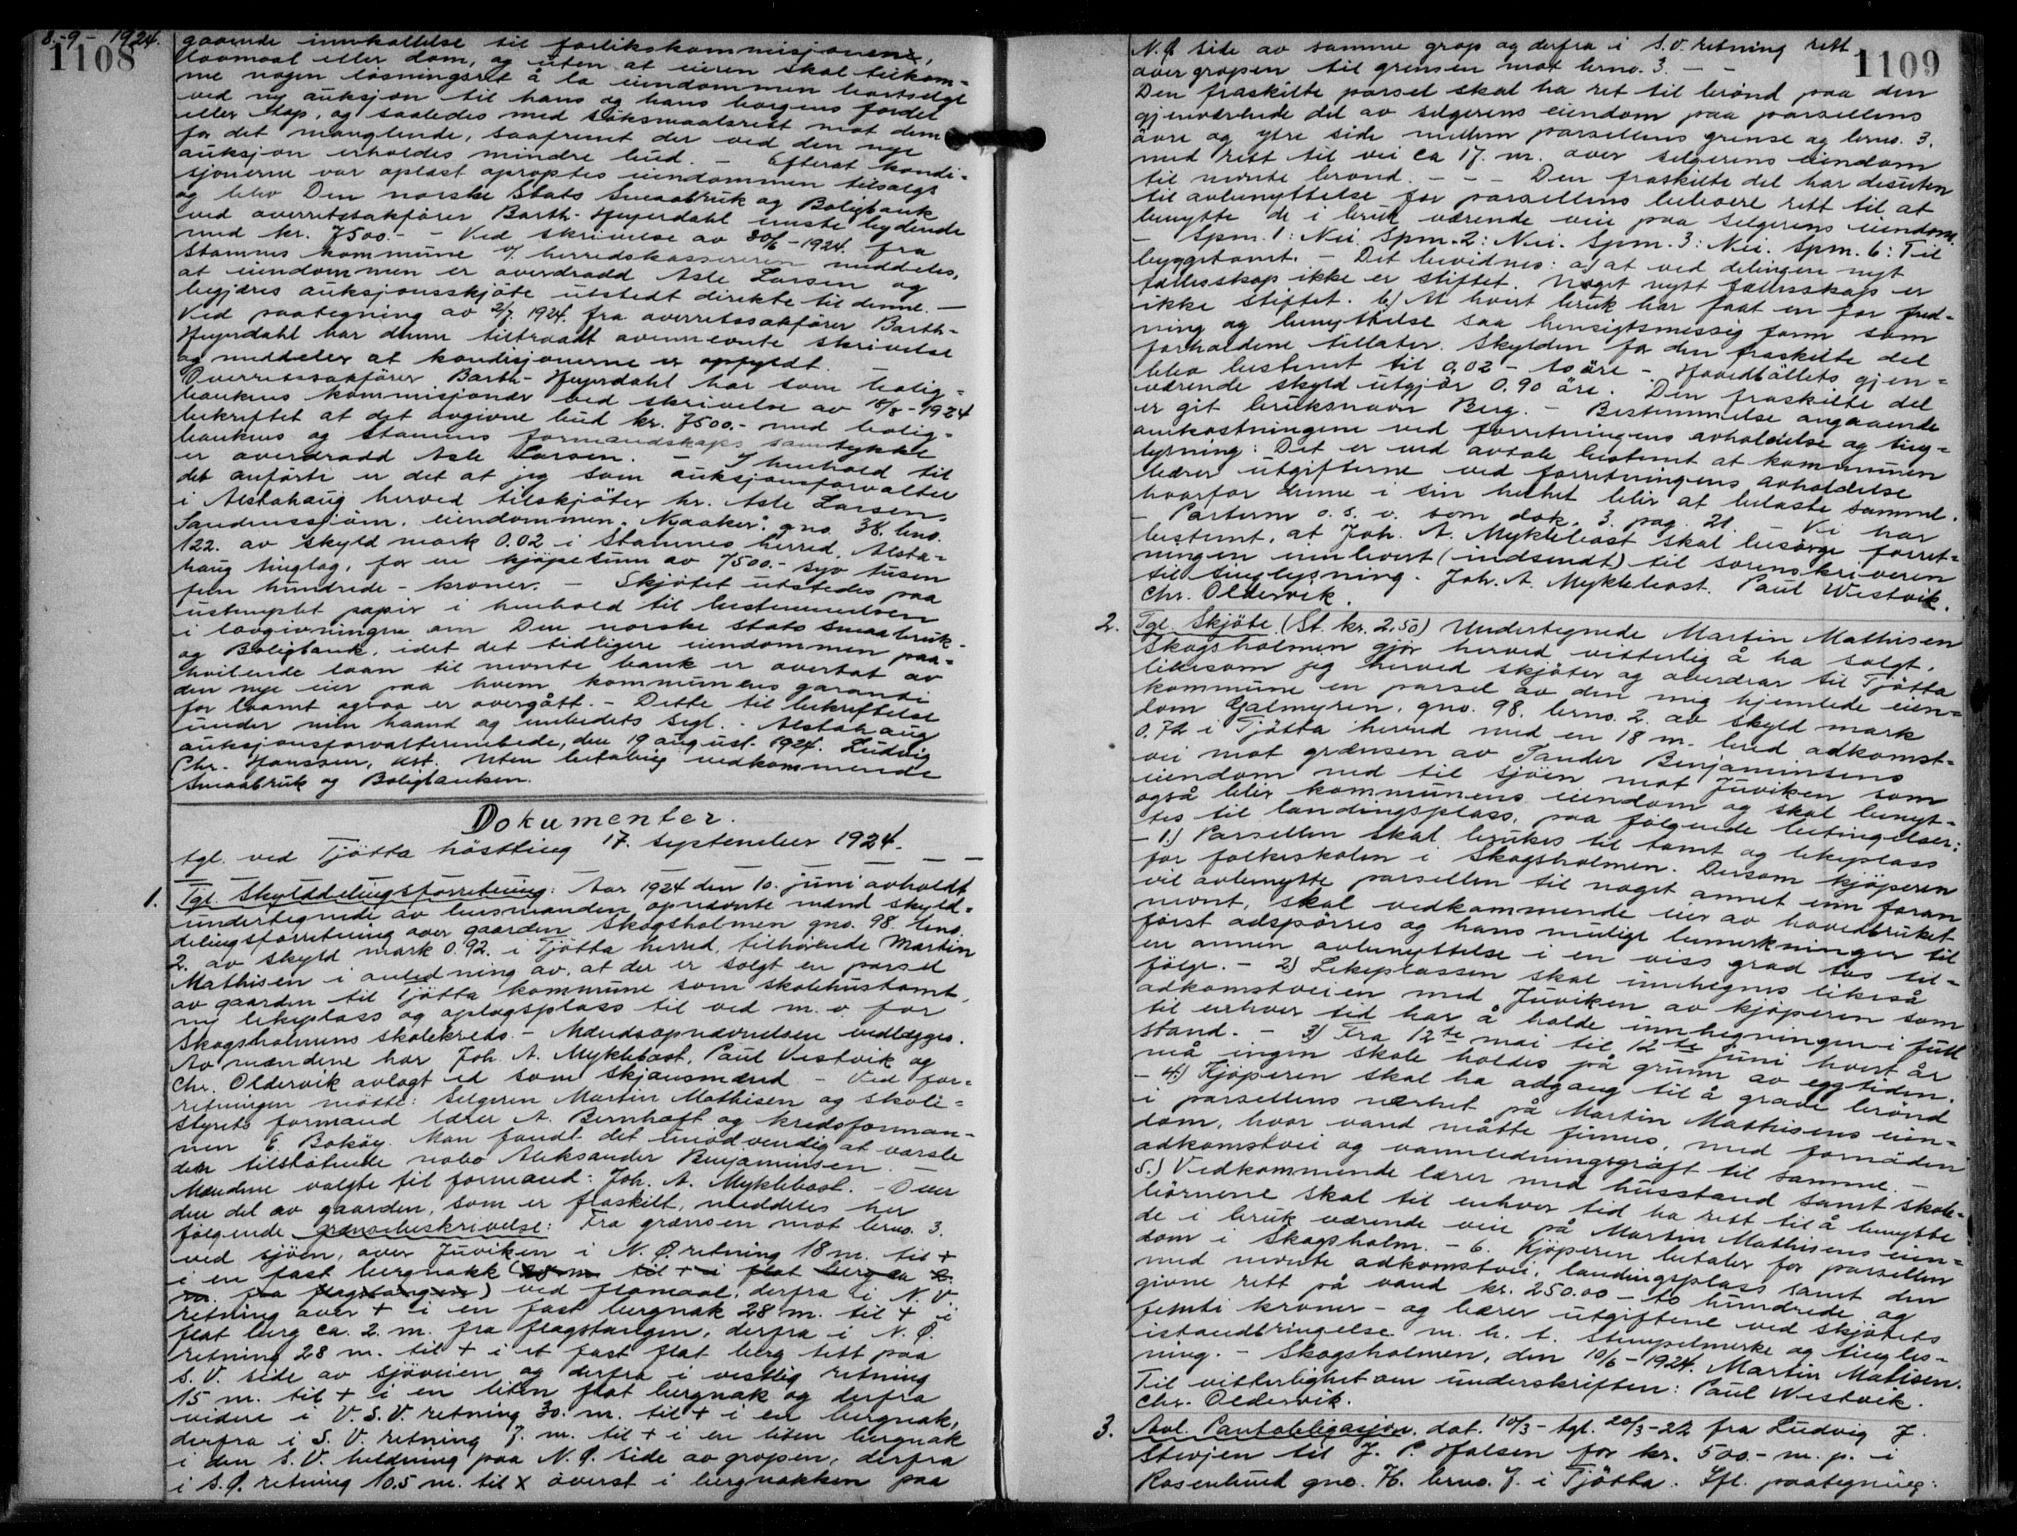 8.-9.- 1924.
1108
gaaende innkallelse til forlikskommisjonen,
lovmaal eller dom, og uten at eieren skal tilkom-
me nogen løsningsret å la eiendommen bortselge
ved ny auksjon til hans og hans borgens fordel
eller tap, og saaledes med søksmaalsrett mot dem
for det manglende, saafremt der ved den nye
auksjon erholdes mindre bud. - Efterat kondi-
sjonerne var oplæst oproptes eiendommen tilsalgs
og blev Den norske Stats Smaabruk og Boligbank
ved overretssakfører Barth-Heyerdahl eneste bydende
med kr. 7500.- - Ved skrivelse av 30/6-1924 fra
Stamnes kommune v/ herredskassereren meddeles,
at eiendommen er overdradd Asle Larsen og
begjæres auksjonsskjøte utstedt direkte til denne. -
Ved paategning av 2/7. 1924. fra overretssakfører Barth-
Heyerdahl har denne tiltraadt ovennevnte skrivelse
og meddeler at kondisjonerne er opfyldt. -
Overretssakfører Barth-Heyerdahl har som bolig-
bankens kommisjonær ved skrivelse av 18/8-1924
bekreftet at det avgivne bud kr. 7500.- med bolig-
bankens og Stamnes formandskaps samtykke
er overdradd Asle Larsen. - I henhold til
det anførte er det at jeg som auksjonsforvalter
i Alstahaug herved tilskjøter hr. Asle Larsen,
Sandnessjøen, eiendommen "Nyaaker", gno. 38, bno.
122. av skyld mark 0.02 i Stamnes herred, Alsta-
haug tinglag, for en kjøpesum av 7500.- syv tusen
fem hundrede - kroner. - Skjøtet utstedes paa
ustemplet papir i henhold til bestemmelsen
i lovgivningen om Den norske Stats Smaabruk-
og Boligbank, idet det tidligere eiendommen paa-
hvilende laan til nevnte bank er overtat av
den nye eier paa hvem kommunens garanti
for laanet ogsaa er overgått. - Dette til bekreftelse
under min haand og embedets segl. - Alstahaug
auksjonsforvalterembede, den 19 august. 1924. Ludvig
Chr. Janssen, kst. Uten betaling vedkommende
Smaabruk og Boligbanken.
Dokumenter.
tgl. ved Tjøtta høstting 17. september 1924.
1. Tgl. Skylddelingsforretning: Aar 1924 den 10. juni avholdt
undertegnede av lensmanden opnævnte mænd skyld-
delingsforretning over gaarden Skogsholmen gno. 98. bno.
2. av skyld mark 0.92. i Tjøtta herred, tilhørende Martin
Mathisen i anledning av, at der er solgt en parsel
av gaarden til Tjøtta kommune som skolehustomt,
ny lekeplass og oplagsplass til ved m.v. for
Skogsholmens skolekreds. - Mændsopnævnelsen vedlægges.
Av mændene har Joh. A. Myklebost, Paul Vestvik og
Chr. Oldervik avlagt ed som skjønsmænd - Ved for-
retningen møtte: Selgeren Martin Mathisen og skole-
styrets formand lærer A. Bernhoft og kredsforman-
nen E. Bokøy. Man fandt det unødvendig at varsle
den tilstøtende nabo Aleksander Benjaminsen. -
Mændene valgte til formand: Joh. A. Myklebost. - Over
den del av gaarden, som er fraskilt, meddeles her
følgende grænsebeskrivelse: Fra grænsen mot bno. 3.
ved sjøen, over Juviken i N.Ø. retning 18 m. til +
i en fast bergnakk (28 m til + i flat berg ca 2.
m. fra flagstangen) ved flomaal, derfra i N.V
retning over + i en fast bergnak 28 m. til + i
flat berg ca. 2. m. fra flagstangen, derfra i N.Ø.
retning 28 m. til + i et fast flat berg tett paa
S.V. side av sjøveien og derfra i vestlig retning
15 m. til + i en liten flat bergnak og derfra
videre i V.S.V. retning 30. m. til + i en bergnak,
derfra i S.V. retning 7. m. til + i en liten bergnak
i den S.V. heldning paa N.Ø. side av gropen, derfra
i S.Ø. retning 10.5 m. til x øverst i bergnakken paa
1109
N.Ø side av samme grop og derfra i S.V. retning rett
over gropen til grensen mot brno. 3. - -
Den fraskilte parsel skal ha ret til brønd paa den
gjenværende del av selgerens eiendom paa parsellens
øvre og ytre side mellem parsellens grense og brno. 3.
med rett til vei ca 17. m. over selgerens eiendom
til nevnte brønd. - - - Den fraskilte del har desuten
til avbenyttelse for parsellens beboere rett til at
benytte de i bruk værende veie paa selgerens eiendom.
- Spm. 1: Nei. Spm. 2: Nei. Spm. 3: Nei. Spm. 6: Til
byggetomt. - Det bevidnes: a) at ved delingen nyt
fællesskap ikke er stiftet. Noget nytt fællesskap er
ikke stiftet. b) At hvert bruk har faat en for fred-
ning og benyttelse saa hensigtsmessig form som
forholdene tillater. Skylden for den fraskilte del
blev bestemt til 0,02 - to øre - Hovedbøllets gjen-
værende skyld utgjør 0.90 øre. Den fraskilte del
er git bruksnavn Berg. - Bestemmelse angaaende
omkostningene ved forretningens avholdelse og ting-
lysning: Det er ved avtale bestemt at kommunen
bærer utgifterne ved forretningens avholdelse
hvorfor denne i sin helhet blir at belaste samme.
- Parterne o.s.v. som dok. 3. pag. 21. - Vi har
bestemt, at Joh. A. Myklebost skal besørge forret-
ningen innlevert (indsendt) til sorenskriveren
til tinglysning. Joh. A. Myklebost. Paul Westvik.
Chr. Oldervik.
2. Tgl. Skjøte (St. kr. 2.50) Undertegnede Martin Mathisen
Skogsholmen gjør herved vitterlig å ha solgt,
likesom jeg herved skjøter og overdrar til Tjøtta
kommune en parsel av den mig hjemlede eien-
dom Galmyren, gno. 98. brno. 2. av skyld mark
0.72 i Tjøtta herred med en 18 m. bred adkomst-
vei mot grænsen av Tander Benjaminsens
eiendom ned til sjøen mot Juviken som
også blir kommunens eiendom og skal benyt-
tes til landingsplass, paa følgende betingelser:
- 1.) Parsellen skal brukes til tomt og lekeplass
for folkeskolen i Skogsholmen. Dersom kjøperen
vil avbenytte parsellen til noget annet enn foran
nevnt, skal vedkommende eier av hovedbruket
først adspørres og hans mulige bemerkninger til
en annen avbenyttelse i en viss grad tas til-
følge. - 2) Lekeplassen skal innhegnes likeså
adkomstveien med Juviken av kjøperen som
til enhver tid har å holde innhegningen i full
stand. - 3) Fra 12te mai til 12te juni hvert år
må ingen skole holdes på grunn av eggtiden.
- 4.) Kjøperen skal ha adgang til å grave brønd
i parsellens nærhet på Martin Mathisens eien-
dom, hvor vand måtte finnes, med fornøden
adkomstvei og vannledningsgrøft til samme. -
5.) Vedkommende lærer med husstand samt skole-
børnene skal til enhver tid ha rett til å benytte
de i bruk værende veie på Martin Mathisens eien-
dom i Skogsholm. - 6. Kjøperen betaler for parsellen
med nevnte adkomstvei, landingsplass samt den
givne rett på vand kr. 250.00 - to hundrede og
femti kroner - og bærer utgiftene ved skjøtets
istandbringelse m.h.t. stempelmerke og tingles-
ning. - Skogsholmen, den 10/6-1924. Martin Matisen.
Til vitterlighet om underskriften: Paul Westvik.
Chr. Oldervik.
3. Avl. Pantobligasjon, dat. 10/3 - tgl. 20/3-22 fra Ludvig J.
til J. P. Halsen for kr. 500.- m. p. i
Rosenlund gno. brno. 7. i Tjøtta. Ifl. paategning: